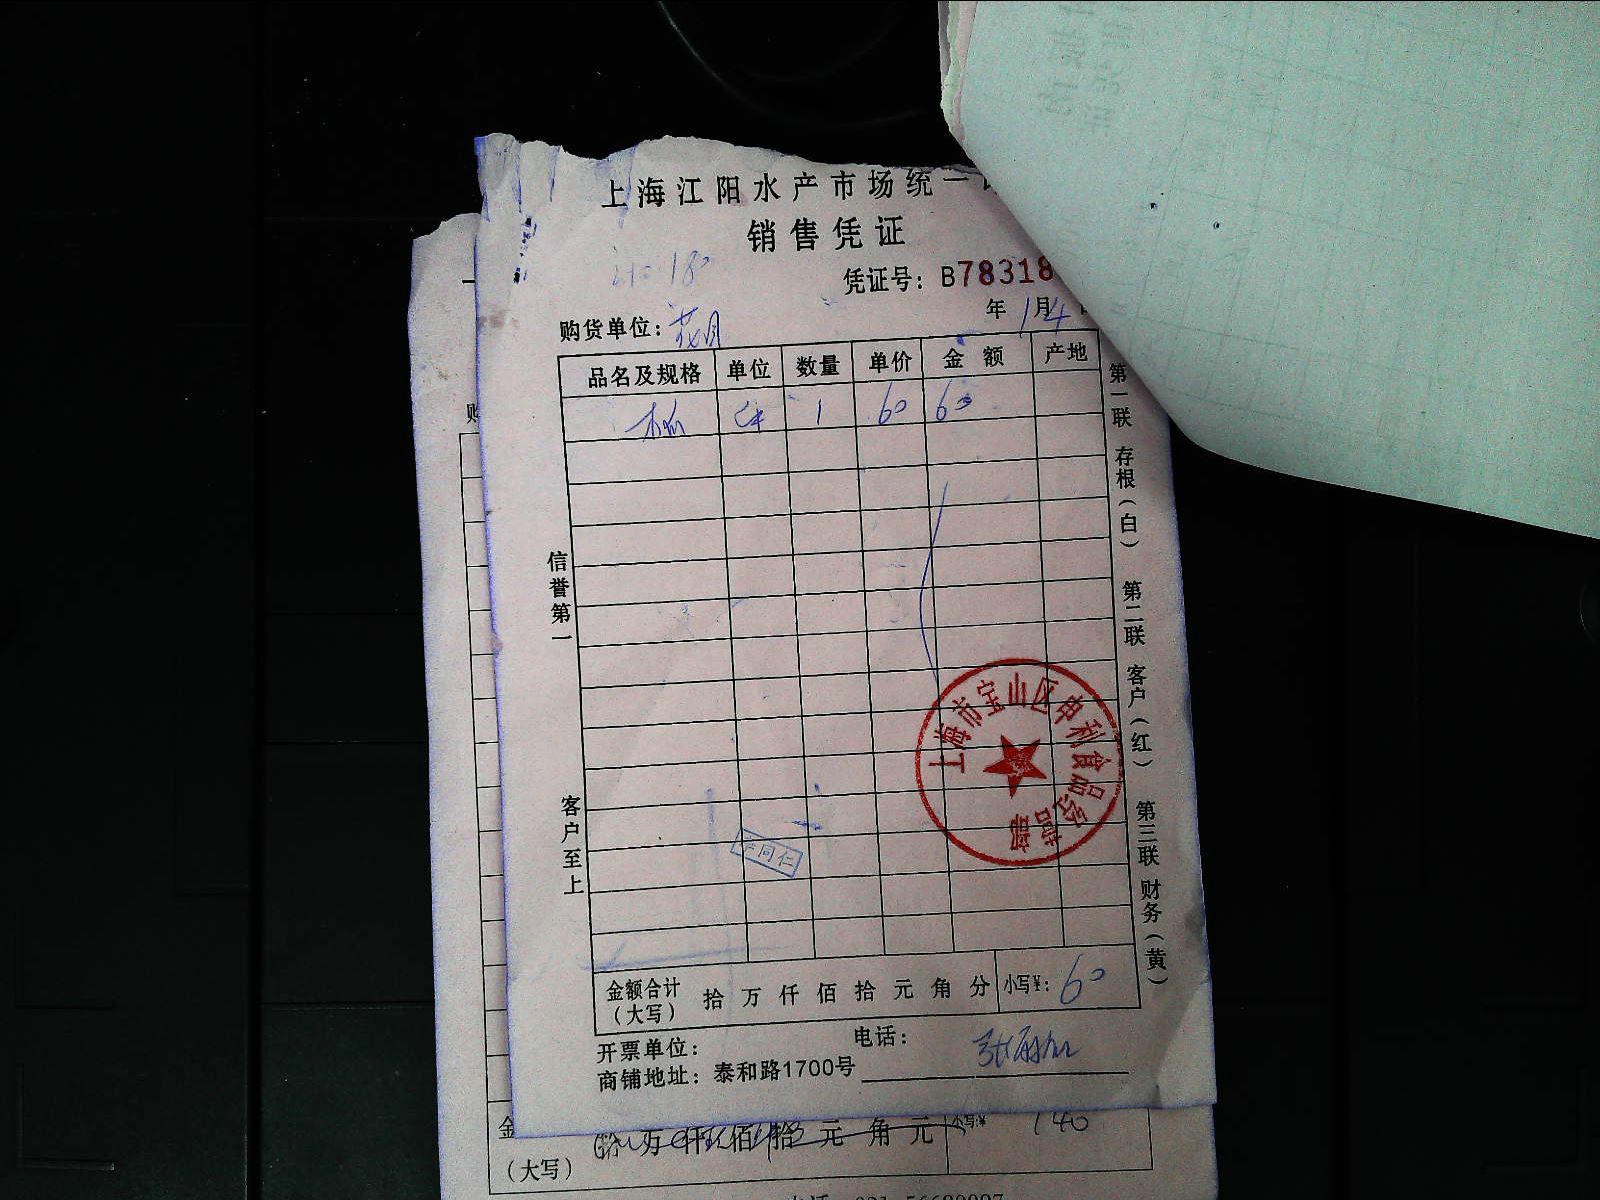 上海江阳水产市场统一
销售凭证
凭证号：B78318
年1月4
购货单位：花月
品名及规格 单位 数量 单价 金额 产地
1 60 60
信誉第一
客户至上
第一联 存根（白） 第二联 客户（红） 第三联 财务（黄）
上海市宝山区申利食品经营部
同仁
金额合计（大写） 拾 万 仟 佰 拾 元 角 分 小写¥：60
开票单位： 电话：
商铺地址：泰和路1700号
拾 万 仟 佰 拾 元 角 元 小写:¥ 140
（大写）